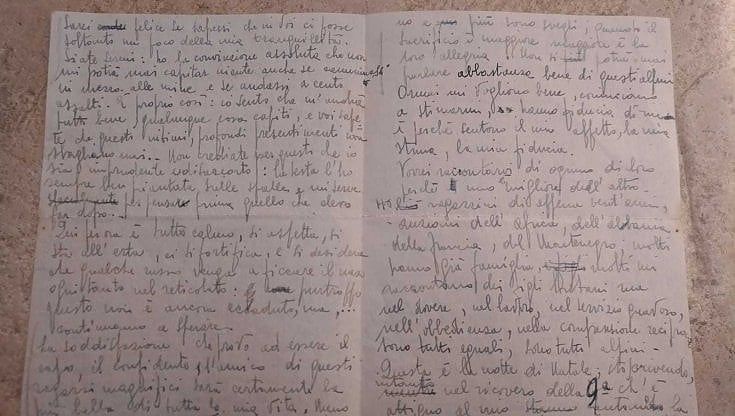 Sarei felice se sapessi che in voi ci fosse
soltanto un poco della mia tranquillità.
Siate sereni: ho la convinzione assoluta che non
mi potrà mai capitar niente anche se camminassi
in mezzo alle mine e se andassi a cento
assalti. È proprio così: io sento che m'andrà
tutto bene, qualunque cosa capiti, e voi sape-
te che questi intimi, profondi presentimenti non
sbagliano mai... Non crediate per questo che io
sia imprudente o distratto: la testa l'ho
sempre ben piantata sulle spalle e mi serve
per pensare prima quello che devo
far dopo...
Qui finora è tutto calmo, si aspetta, si
sta all'erta, ci si fortifica, e si desidera
che qualche russo venga a ficcare il naso
ogni tanto nel reticolato: purtroppo
questo non è ancora accaduto, ma, ...
continuiamo a sperare.
La soddisfazione che provo ad essere il
capo, il confidente, l'amico di questi
ragazzi magnifici sarà certamente la
più bella di tutta la mia vita,
no a più sono svegli, quando il
sacrificio è maggiore maggiore è la
loro allegria. Non si potrà mai
parlare abbastanza bene di questi alpini
Ormai mi vogliono bene, cominciano
a stimarmi, hanno fiducia di me
è perché sentono il mio affetto, la mia
stima, la mia fiducia.
Vorrei raccontarvi di ognuno di loro
perché uno migliore dell'altro.
Ho ragazzini di appena vent'anni,
anziani dell'Africa, dell'Albania
della Francia, del Montenegro: molti
hanno già famiglia, molti mi
raccontano dei figli lontani ma
nel dovere, nel lavoro, nel servizio gravoso,
nell'obbedienza, nella comprensione recipro
sono tutti eguali, sono tutti alpini -
Questa è la notte di Natale; sto scrivendo,
nel ricovero della 9ª ch'è
attiguo al mio